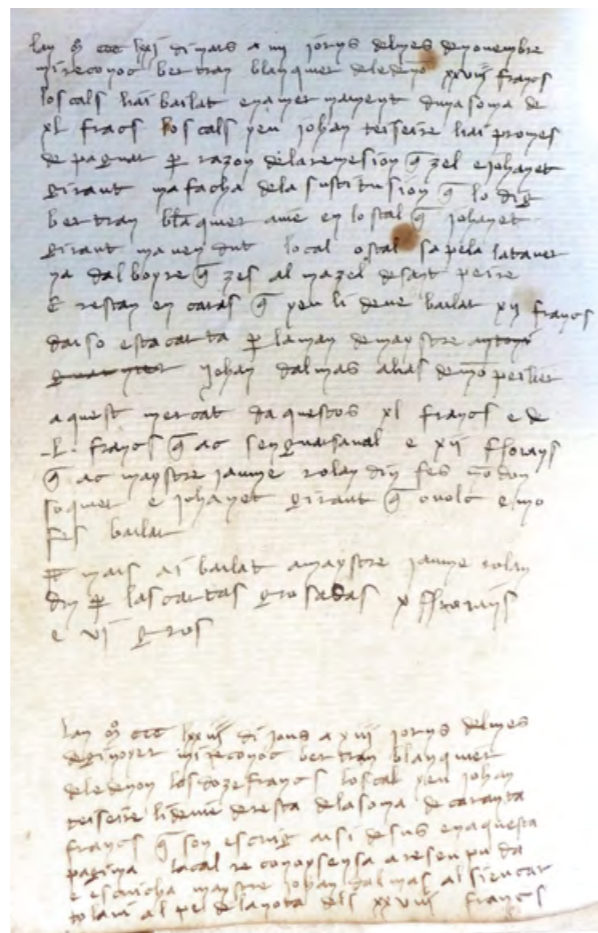 lan m ccc lxxj dimars a iiij jorns delmes de novembre
mi reconoc bertran blanquier deledeno xxviij francs
los cals liai bailat enamermament duna soma de
xl francs los cals yeu johan teiseire liai promes
de paguar per razon dela remesion que zel e johanet
giraut mafacha dela sustitusion que lo dig
bertran blaquier avie en lostal que johanet
giraut ma vendut local ostal sapela lataver
na dalboyre que zes al mazel de sant peire
E restan en caras que yeu li deve bailar xij francs
daiso esta carta per la man de maystre antoni
johan dalmas alias de monpeslier
aquest mercat daquestos xl francs e de
.L. francs que ac senguarsaval e xij fflorins
que ac maystre jaume rolan din fes non don
soquier e johanet giraut que o volc e mo
fes bailar
E mais ai bailat a maystre jaume rolan
din per las cartas grosadas x fflorins
e vj gros
lan m ccc lxxiiij dijaus a xviij jorns delmes
deginoyer mi reconoc bertran blanquier
deledenon los doze francs los cal yeu johan
teiseire li devie de resta dela soma de caranta
francs que son escrig aisi desus en aquesta
pagina lacal reconoysensa a resenpuda
e escricha maystre johan dalmas al sieu car
tolari al pe de la nota dels xxviij francs